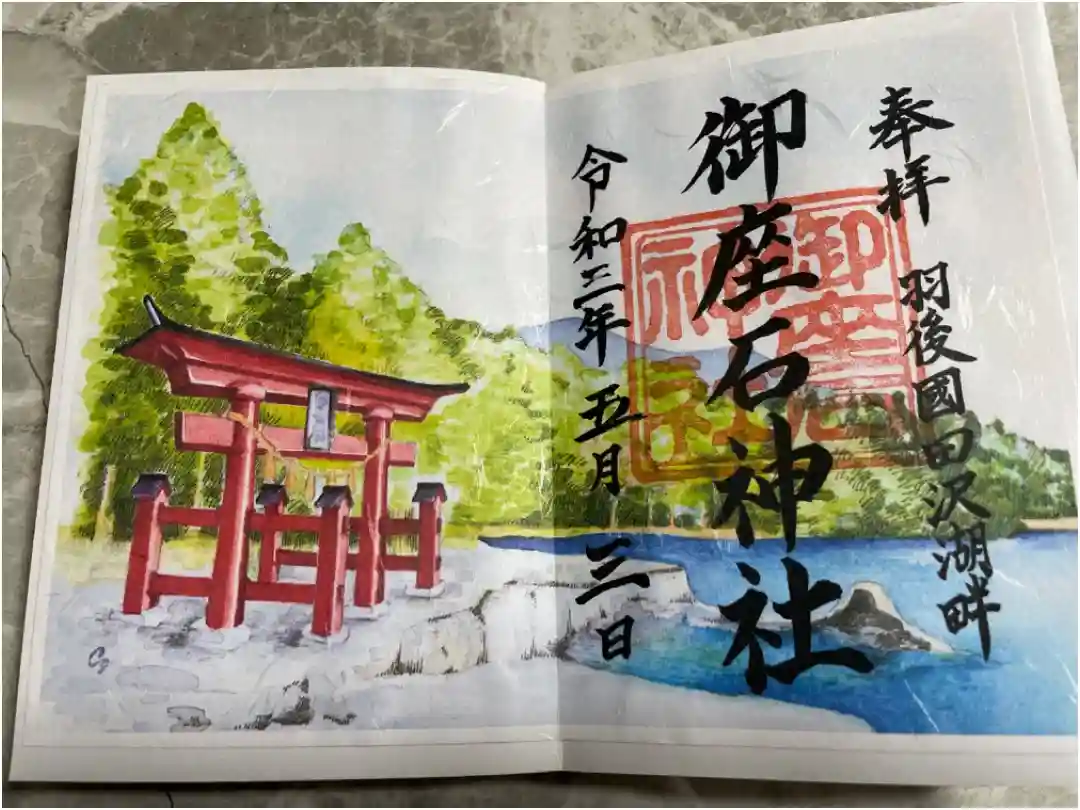 奉拝 羽後國田沢湖畔
御座石神社
御座石
神社
令和三年 五月 三日